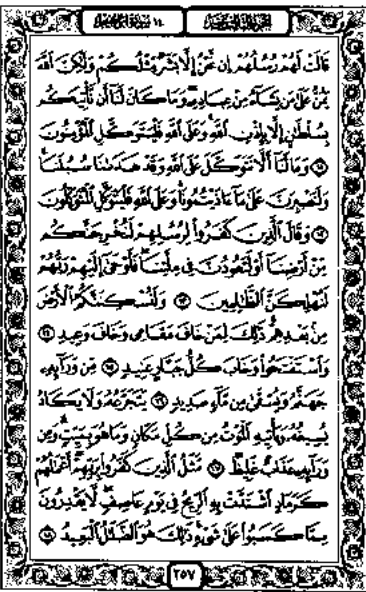 الجزء الثالث عشر
١٤ سورة إبراهيم
قَالَتْ لَهُمْ رُسُلُهُمْ إِن نَّحْنُ إِلَّا بَشَرٌ مِّثْلُكُمْ وَلَٰكِنَّ ٱللَّهَ
يَمُنُّ عَلَىٰ مَن يَشَآءُ مِنْ عِبَادِهِۦ وَمَا كَانَ لَنَآ أَن نَّأْتِيَكُم
بِسُلْطَٰنٍ إِلَّا بِإِذْنِ ٱللَّهِ وَعَلَى ٱللَّهِ فَلْيَتَوَكَّلِ ٱلْمُؤْمِنُونَ
١١ وَمَا لَنَآ أَلَّا نَتَوَكَّلَ عَلَى ٱللَّهِ وَقَدْ هَدَىٰنَا سُبُلَنَا
وَلَنَصْبِرَنَّ عَلَىٰ مَآ ءَاذَيْتُمُونَا وَعَلَى ٱللَّهِ فَلْيَتَوَكَّلِ ٱلْمُتَوَكِّلُونَ
١٢ وَقَالَ ٱلَّذِينَ كَفَرُوا۟ لِرُسُلِهِمْ لَنُخْرِجَنَّكُم
مِّنْ أَرْضِنَآ أَوْ لَتَعُودُنَّ فِى مِلَّتِنَا فَأَوْحَىٰٓ إِلَيْهِمْ رَبُّهُمْ
لَنُهْلِكَنَّ ٱلظَّٰلِمِينَ ١٣ وَلَنُسْكِنَنَّكُمُ ٱلْأَرْضَ
مِنۢ بَعْدِهِمْ ذَٰلِكَ لِمَنْ خَافَ مَقَامِى وَخَافَ وَعِيدِ ١٤
وَٱسْتَفْتَحُوا۟ وَخَابَ كُلُّ جَبَّارٍ عَنِيدٍ ١٥ مِّن وَرَآئِهِۦ
جَهَنَّمُ وَيُسْقَىٰ مِن مَّآءٍ صَدِيدٍ ١٦ يَتَجَرَّعُهُۥ وَلَا يَكَادُ
يُسِيغُهُۥ وَيَأْتِيهِ ٱلْمَوْتُ مِن كُلِّ مَكَانٍ وَمَا هُوَ بِمَيِّتٍ وَمِن
وَرَآئِهِۦ عَذَابٌ غَلِيظٌ ١٧ مَّثَلُ ٱلَّذِينَ كَفَرُوا۟ بِرَبِّهِمْ أَعْمَٰلُهُمْ
كَرَمَادٍ ٱشْتَدَّتْ بِهِ ٱلرِّيحُ فِى يَوْمٍ عَاصِفٍ لَّا يَقْدِرُونَ
مِمَّا كَسَبُوا۟ عَلَىٰ شَىْءٍ ذَٰلِكَ هُوَ ٱلضَّلَٰلُ ٱلْبَعِيدُ ١٨
٢٥٧